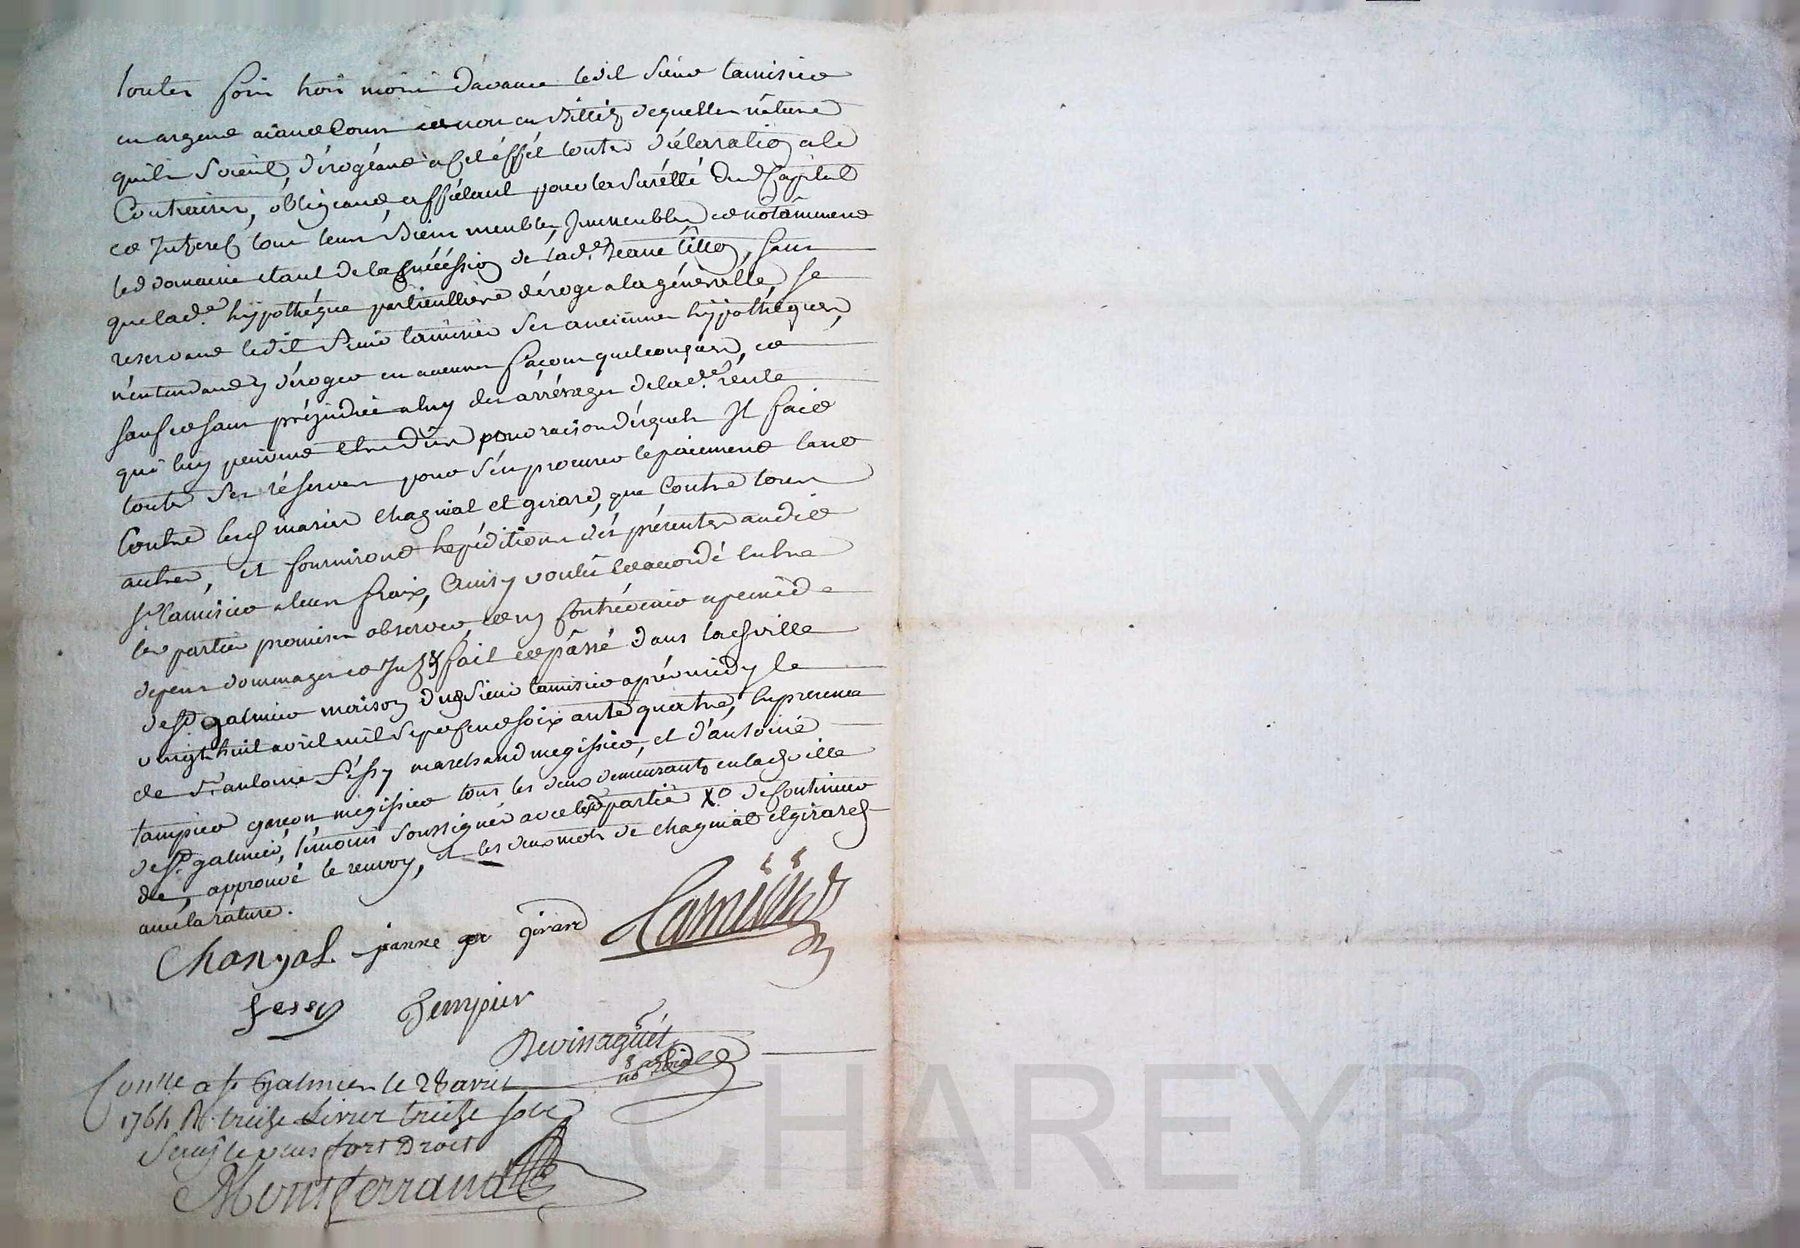 toutes fois trois mois d'avance ledit sieur tamisier
en argent aiant cours et non en billiets de quelles nâture
quils soient, dérogéant a cet éffét toutes déclaratiôn a le
Contraires, obligeant, afféctant pour la suretté dud. Capital
et Inthérêts tous leurs biens meubles, Immeubles, et notâmment
led domaine étant de la succéssion de lad.e Jeane, sans
que lad.e hÿpothéque particulliere déroge a la généralle, se
reservant ledit sieur tamisier ses anciennes hÿpothéques,
n'entendant y déroger en aucunes façons quelconques, et
sauf et sans préjudice a luy des arrérages de lad.e rente
qui luy peuvent etre dus pour raison desquels Il fait
toutes ses réserves pour s'en procurer le paiement tant
Contre lesd mariés Chagniat et girard, que Contre tous
autres, et fourniront héxpéditions dés présentes audit
Sr tamisier a leurs fraix, Ainsy voulu et accordé entre
les parties promis observer, et ny Contrevenir a peine de
depens dommages et fait et pâssé dans lad ville
de St galmier maison dud sieur tamisier aprés midy le
vingt huit avril mil sept cent soixante quatre, En presence
de Sr antoine féssy marchand megissier, et d'antoine
tampier garcon mégissier tous les deux demeurants en lad ville
de St galmier, témoins soussignés avec les parties de Continuer
approuvé le renvoy, et les deux mots de chagniat et girard
avec la rature.
Chanyat jeanne girard Tamisier
fessy Tempier
Devissaguét
Conlle a St Galmier le 28 avril
1764 R. treize Livres treize sols
Montferrand
CHAREYRON